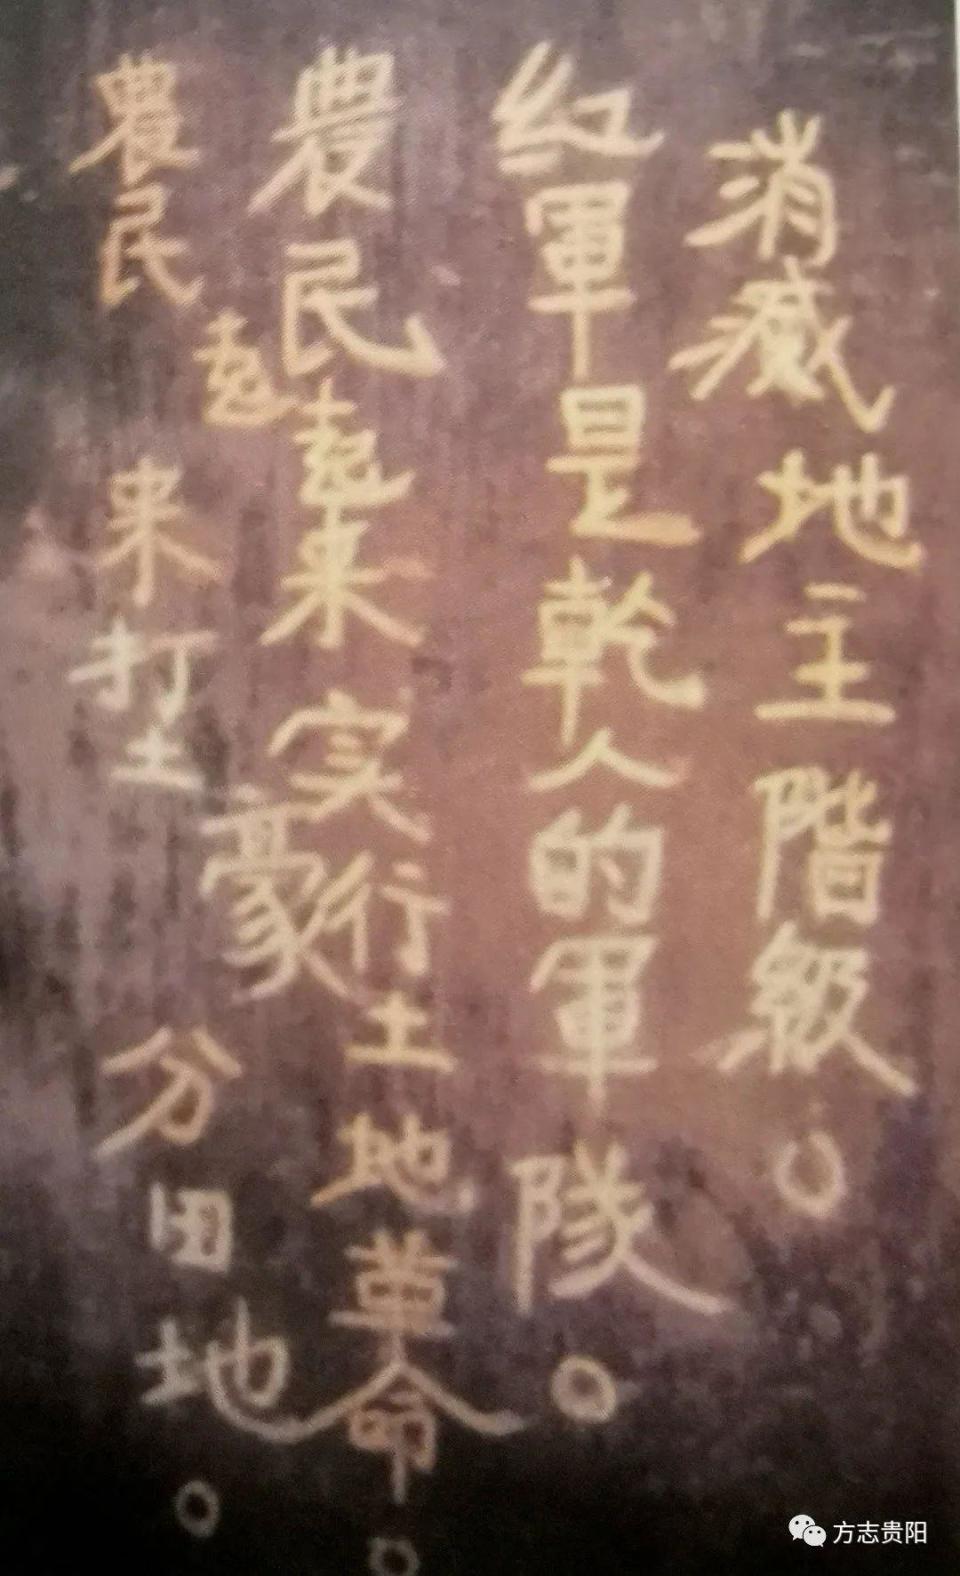 消滅地主階級。
紅軍是乾人的軍隊。
農民起來实行土地革命。
農民起来打土豪分田地。
方志贵阳